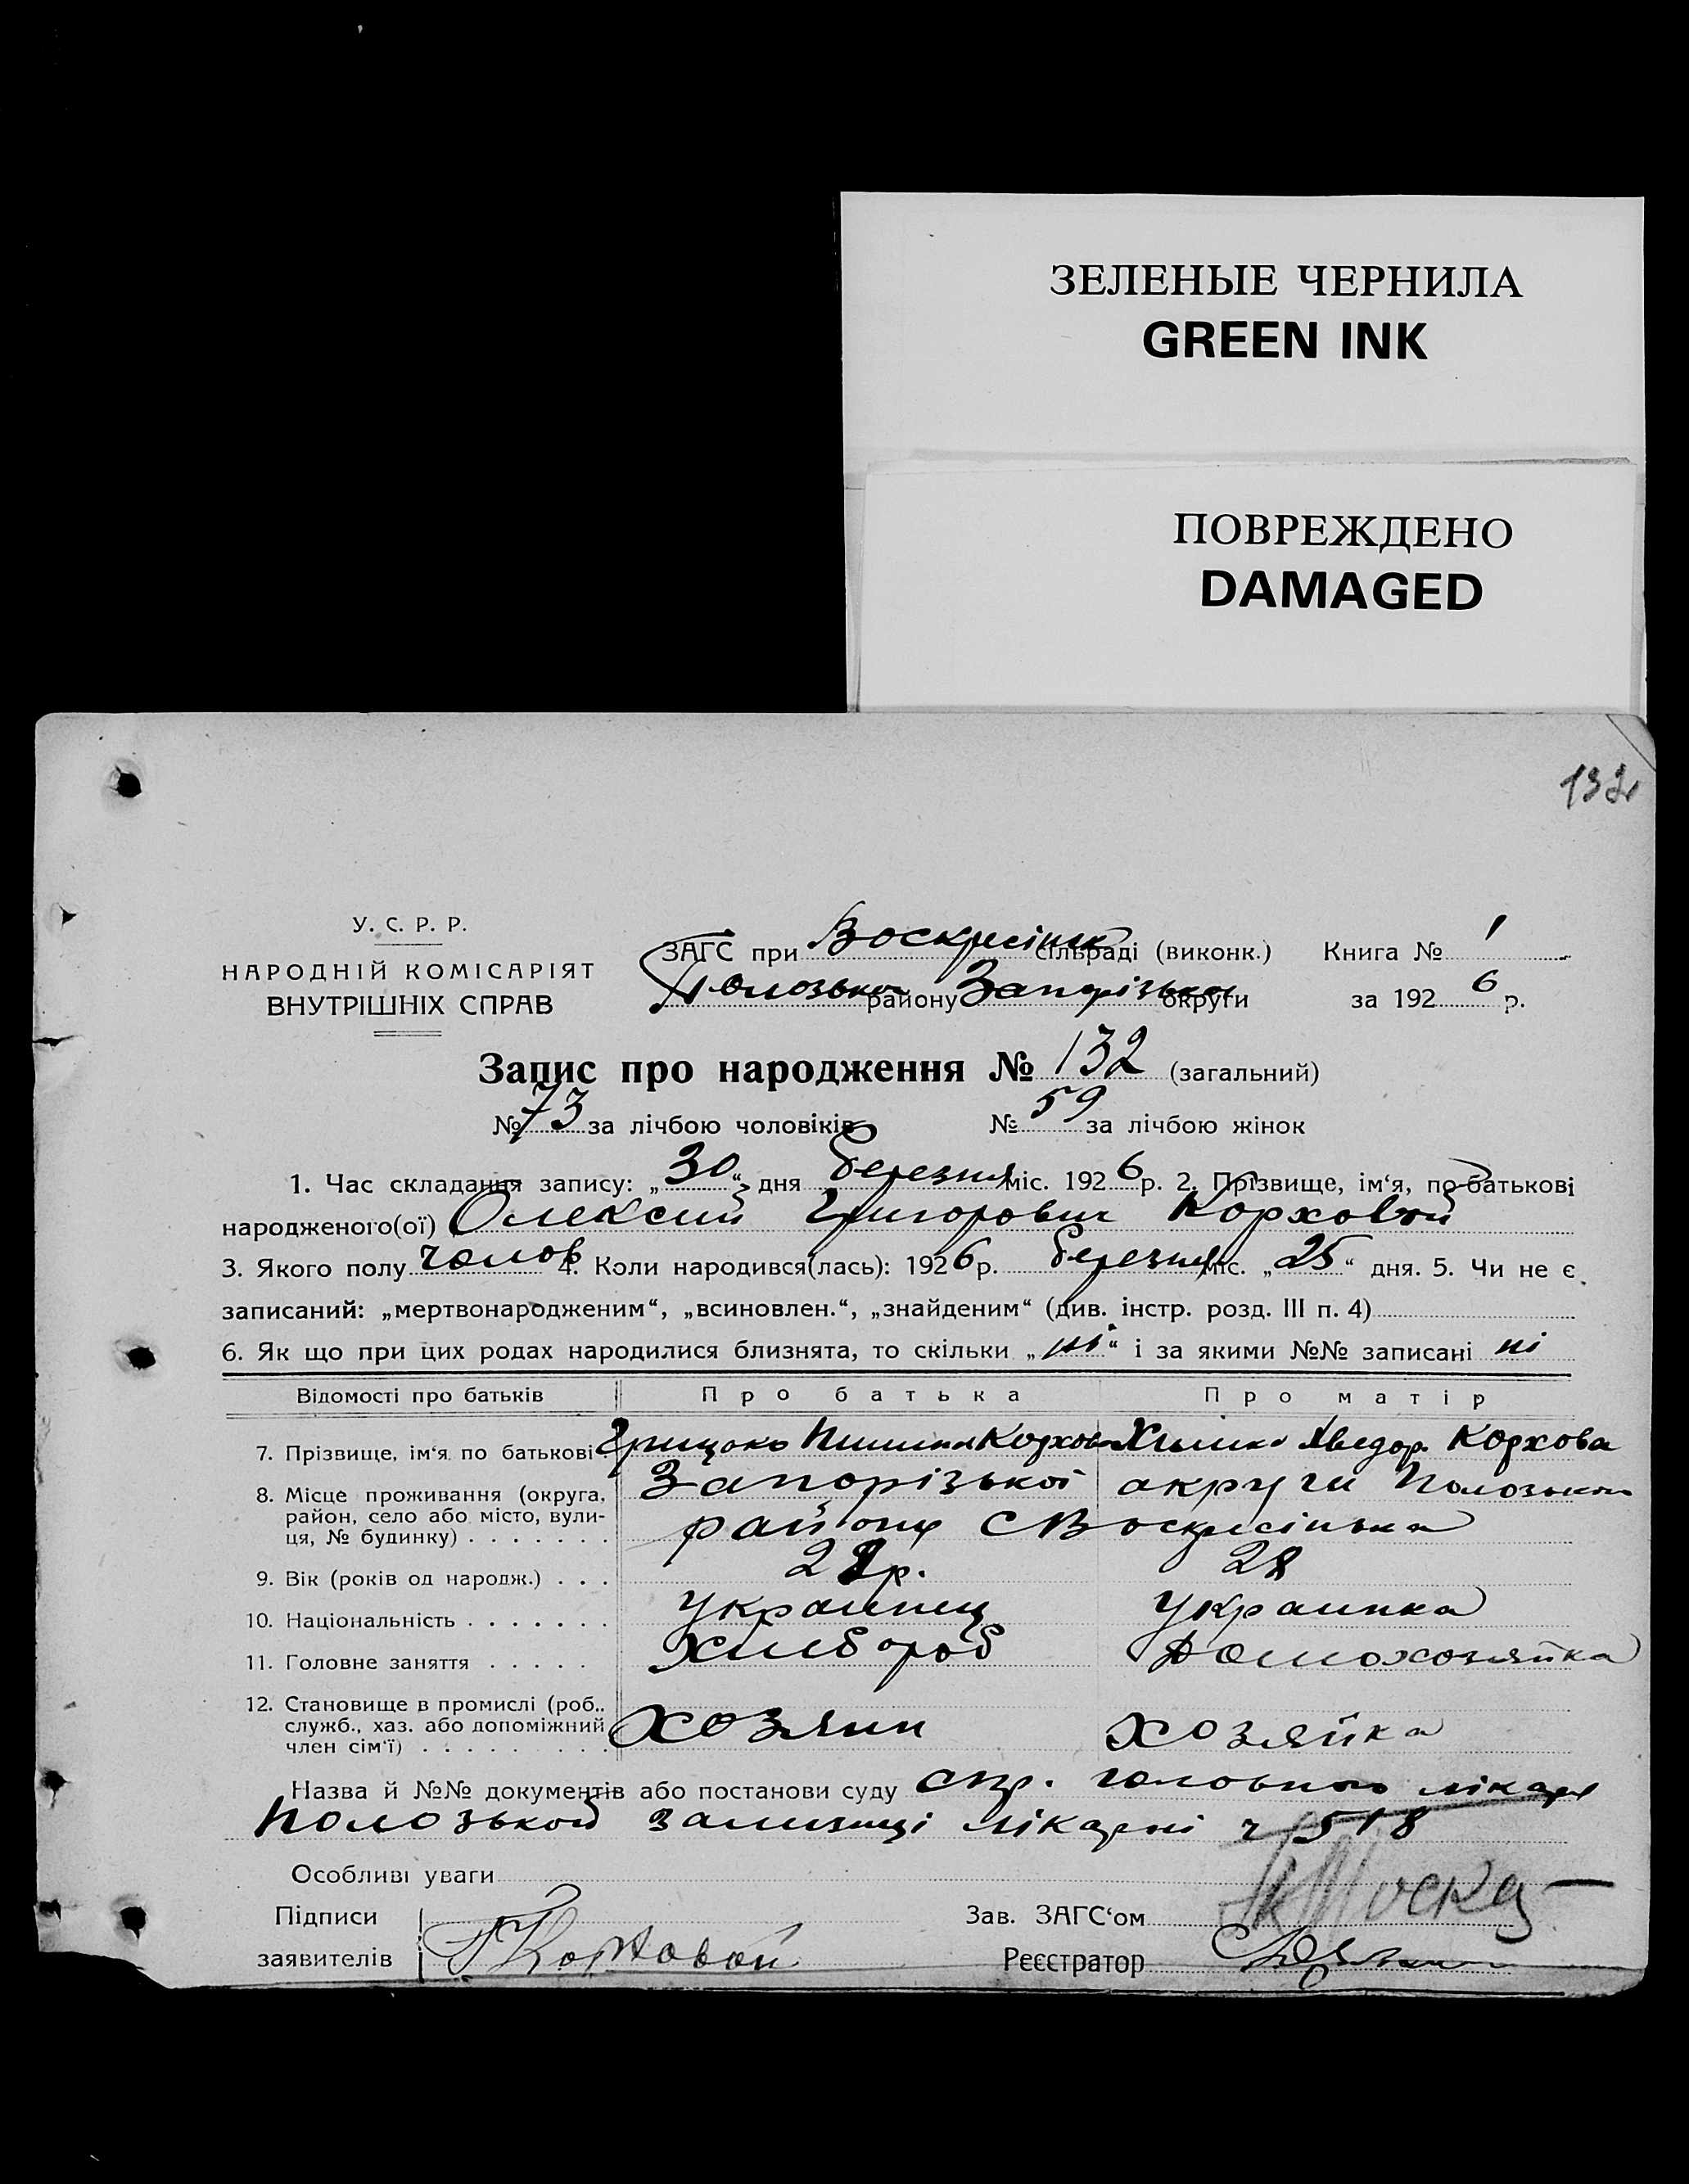 ЗЕЛЕНЫЕ ЧЕРНИЛА
GREEN INK
ПОВРЕЖДЕНО
DAMAGED
132
У. С. Р. Р.
НАРОДНІЙ КОМІСАРІЯТ
ВНУТРІШНІХ СПРАВ
ЗАГС при Воскресінск сільраді (виконк.) Книга № 1
Полозько району Запорізько округи за 1926 р.
Запис про народження № 132 (загальний)
№ 73 за лічбою чоловіків № 59 за лічбою жінок
1. Час складання запису: „30“ дня березня міс. 1926 р. 2. Прізвище, ім‘я, по-батькові
народженого(ої) Олексий Григорович Корховой
3. Якого полу чолов 4. Коли народився(лась): 1926 р. березня міс. „25“ дня. 5. Чи не є
записаний: „мертвонародженим“, „всиновлен.“, „знайденим“ (див. інстр. розд. III п. 4)
6. Як що при цих родах народилися близнята, то скільки „ні“ і за якими №№ записані ні
Відомості про батьків Про батька Про матір
7. Прізвище, ім‘я по батькові Грицько Корхова Авдор. Корхова
8. Місце проживання (округа, район, село або місто, вулиця, № будинку) Запорізької округи Полозькои
району с Воскресінька
9. Вік (років од народж.) р. 28
10. Національність украинец украинка
11. Головне заняття Хлібороб Домохозяйка
12. Становище в промислі (роб., служб., хаз. або допоміжний член сім‘ї) хозяин хозяйка
Назва й №№ документів або постанови суду спр. головного лікаря
Полозькой лікарні ч 518
Особливі уваги
Підписи Зав. ЗАГС‘ом
заявителів Г Корховой Реєстратор